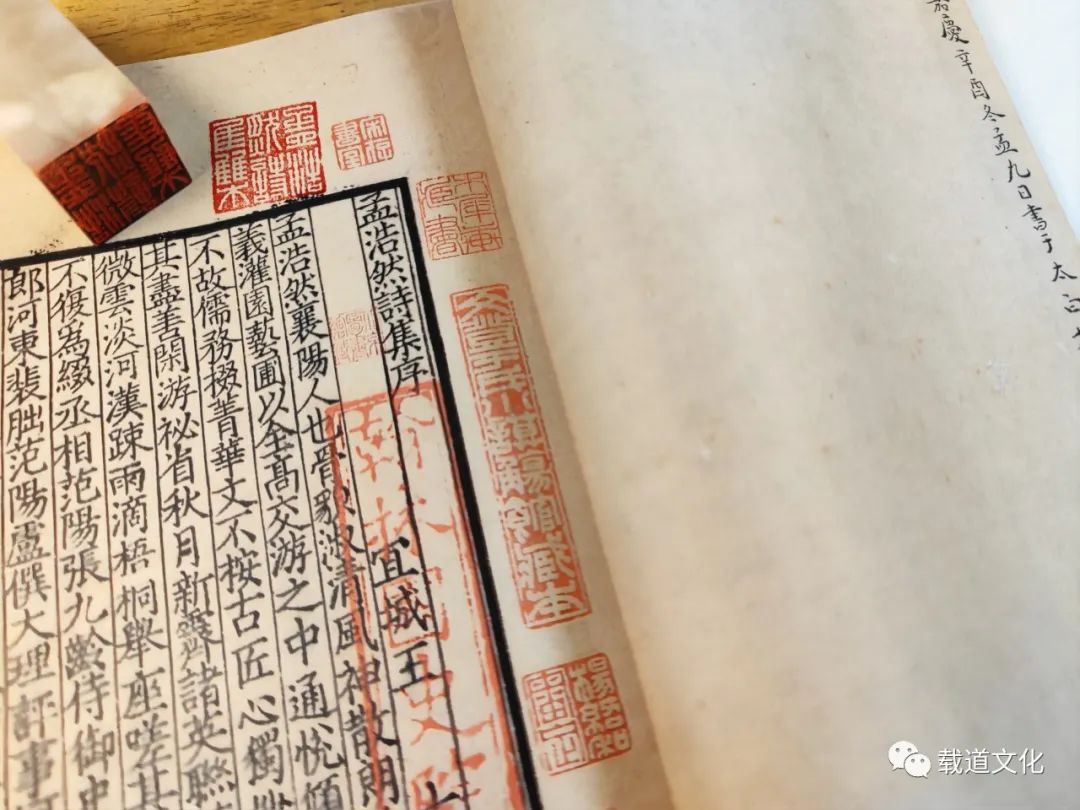 慶辛酉冬孟九日書于太白
宋存書室
文登于氏小謨觴館藏本
楊紹和審定
孟浩然詩集序
宜城王
孟浩然襄陽人也骨貌淑清風神散朗
義灌園藝圃以全高交游之中通侻傾
不故儒務掇菁華文不按古匠心獨
其盡善閑游祕省秋月新霽諸英聯
微雲淡河漢疎雨滴梧桐舉座嗟其
不復為綴丞相范陽張九齡侍御史
郎河東裴朏范陽盧僎大理評事河
翰林國史
载道文化